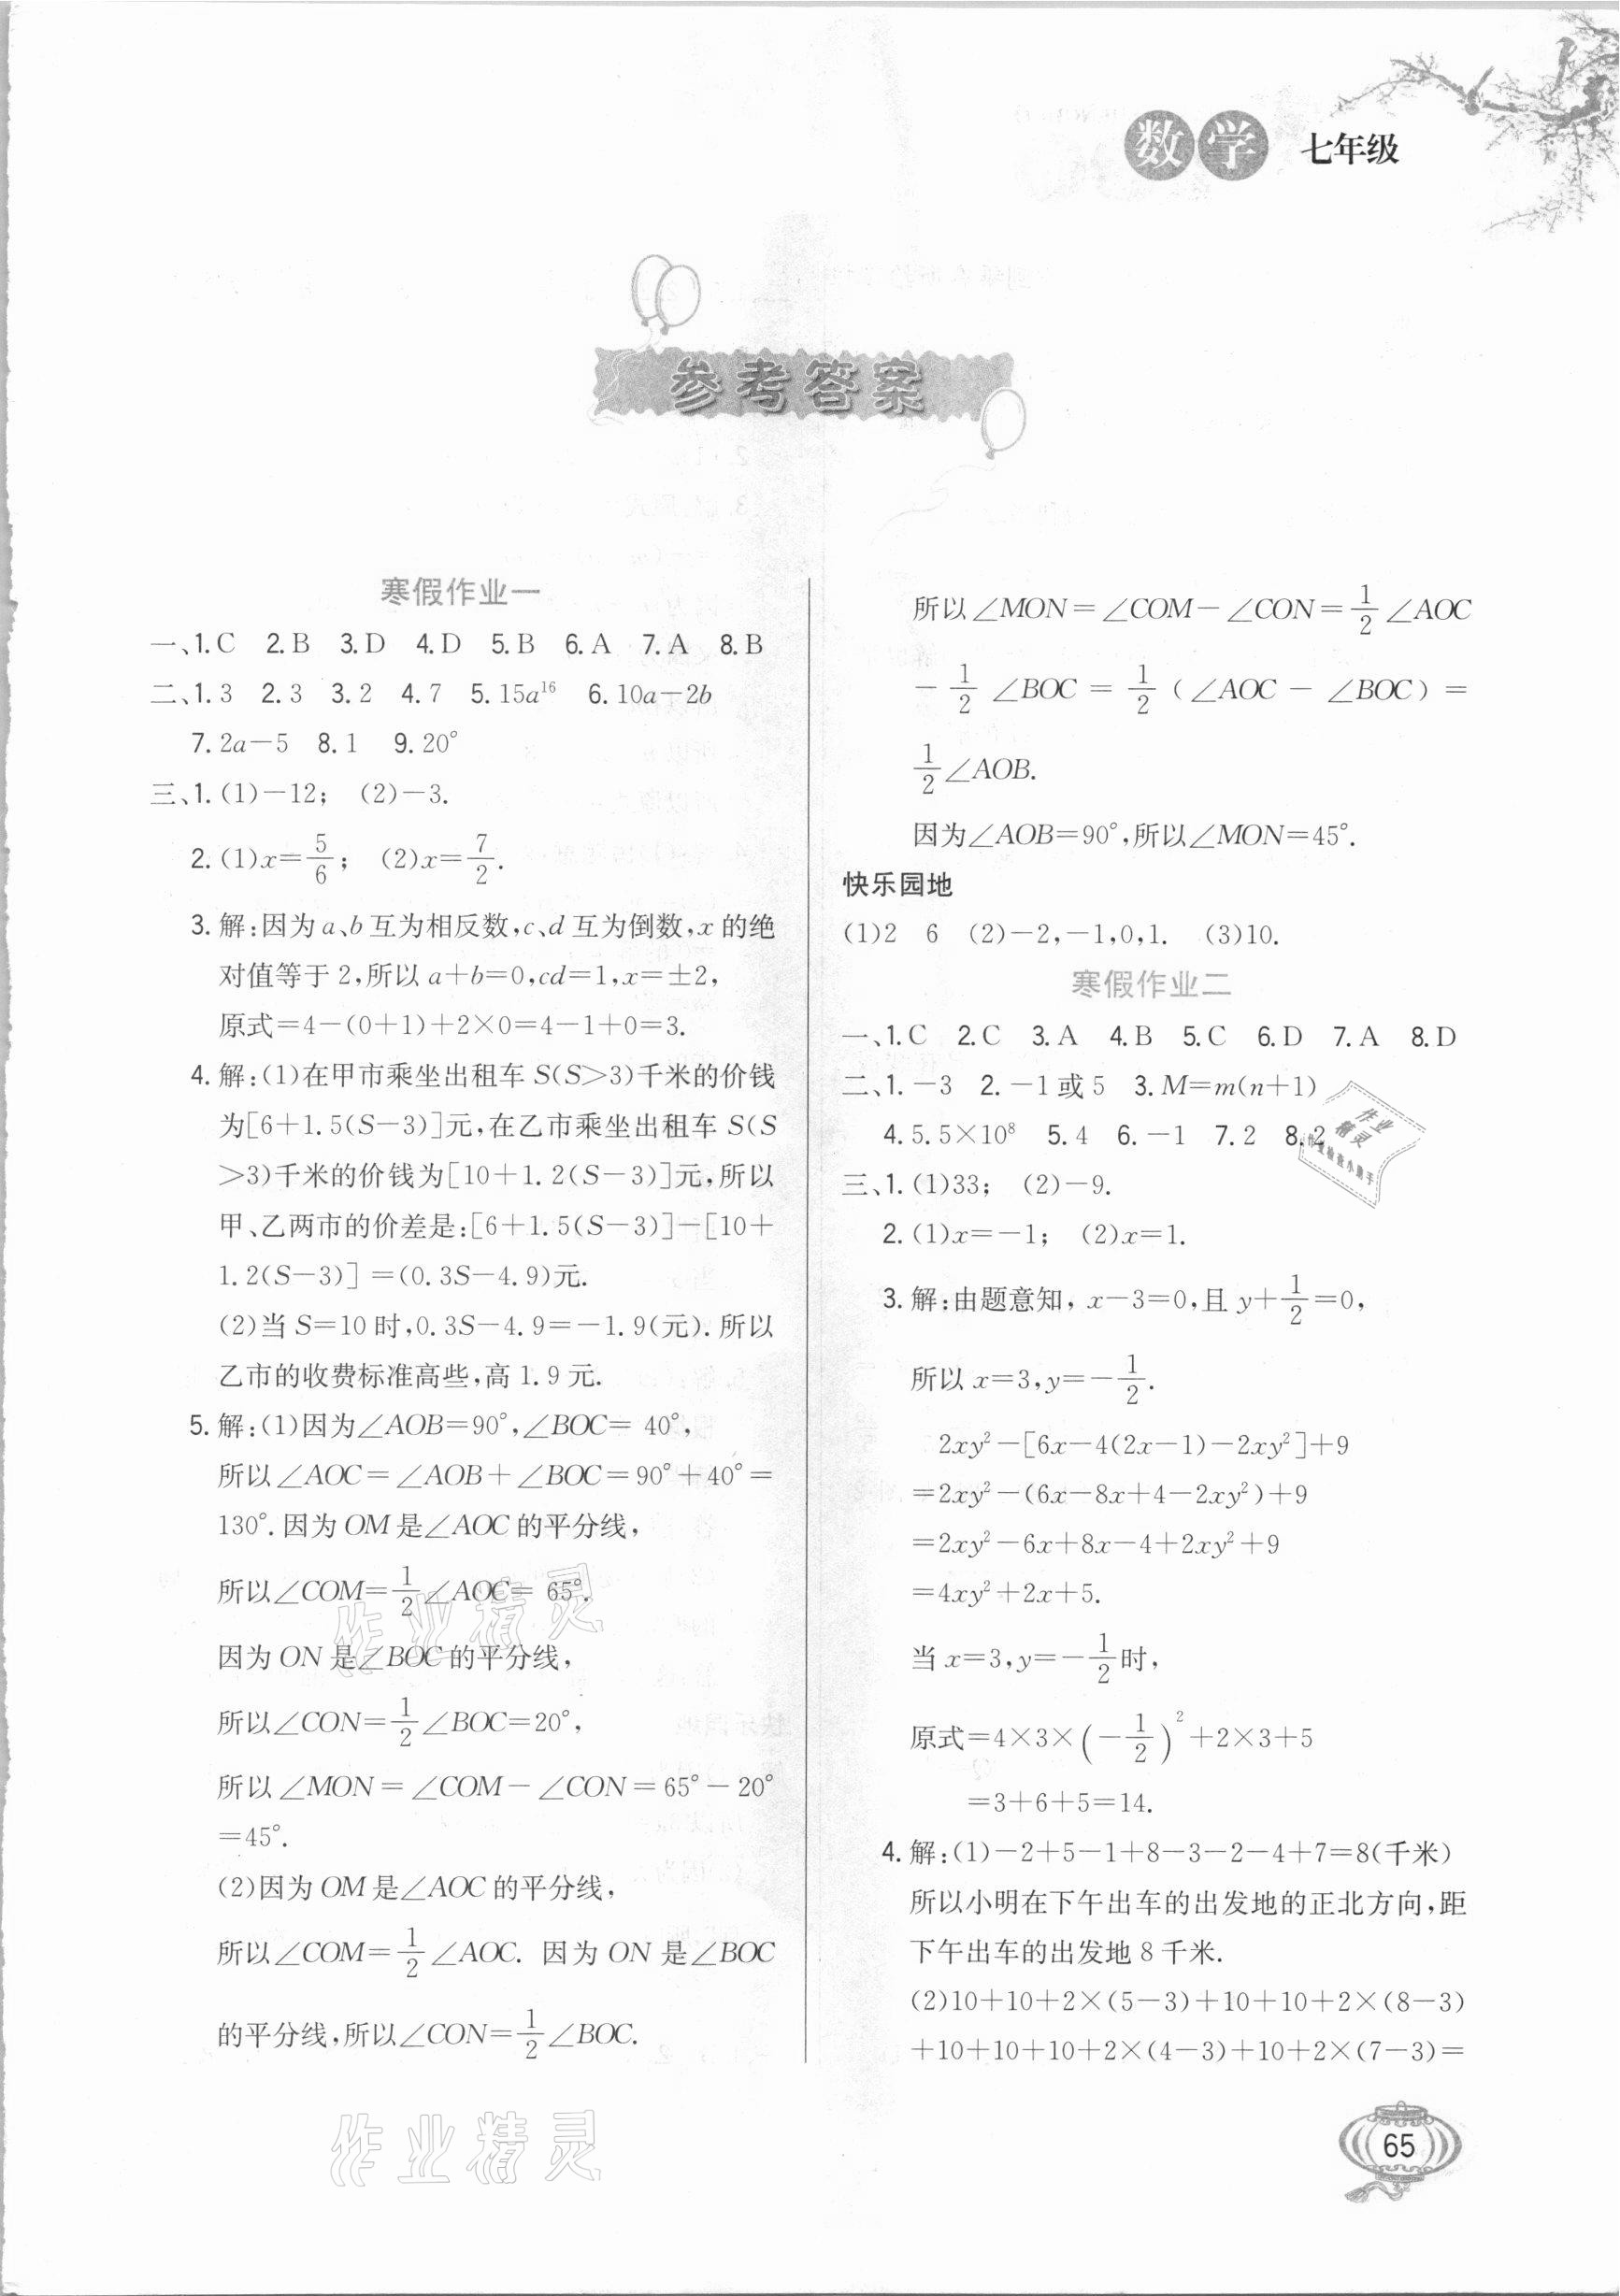 数学 七年级
参考答案
寒假作业一
一、1.C 2.B 3.D 4.D 5.B 6.A 7.A 8.B
二、1.3 2.3 3.2 4.7 5.15a¹⁶ 6.10a−2b
7.2a−5 8.1 9.20°
三、1.(1)−12; (2)−3.
2.(1)x=5/6; (2)x=7/2.
3.解:因为a、b互为相反数,c、d互为倒数,x的绝
对值等于2,所以a+b=0,cd=1,x=±2,
原式=4−(0+1)+2×0=4−1+0=3.
4.解:(1)在甲市乘坐出租车S(S>3)千米的价钱
为[6+1.5(S−3)]元,在乙市乘坐出租车S(S
>3)千米的价钱为[10+1.2(S−3)]元,所以
甲、乙两市的价差是:[6+1.5(S−3)]−[10+
1.2(S−3)]=(0.3S−4.9)元.
(2)当S=10时,0.3S−4.9=−1.9(元).所以
乙市的收费标准高些,高1.9元.
5.解:(1)因为∠AOB=90°,∠BOC=40°,
所以∠AOC=∠AOB+∠BOC=90°+40°=
130°.因为OM是∠AOC的平分线,
所以∠COM=1/2∠AOC=65°.
因为ON是∠BOC的平分线,
所以∠CON=1/2∠BOC=20°,
所以∠MON=∠COM−∠CON=65°−20°
=45°.
(2)因为OM是∠AOC的平分线,
所以∠COM=1/2∠AOC. 因为ON是∠BOC
的平分线,所以∠CON=1/2∠BOC.
作业精灵
作业精灵
所以∠MON=∠COM−∠CON=1/2∠AOC
−1/2∠BOC=1/2(∠AOC−∠BOC)=
1/2∠AOB.
因为∠AOB=90°,所以∠MON=45°.
快乐园地
(1)2 6 (2)−2,−1,0,1. (3)10.
寒假作业二
一、1.C 2.C 3.A 4.B 5.C 6.D 7.A 8.D
二、1.−3 2.−1或5 3.M=m(n+1)
4.5.5×10⁸ 5.4 6.−1 7.2 8.2
作业
精灵
作业检查小助手
三、1.(1)33; (2)−9.
2.(1)x=−1; (2)x=1.
3.解:由题意知,x−3=0,且y+1/2=0,
所以x=3,y=−1/2.
2xy²−[6x−4(2x−1)−2xy²]+9
=2xy²−(6x−8x+4−2xy²)+9
=2xy²−6x+8x−4+2xy²+9
=4xy²+2x+5.
当x=3,y=−1/2时,
原式=4×3×(−1/2)²+2×3+5
=3+6+5=14.
4.解:(1)−2+5−1+8−3−2−4+7=8(千米)
所以小明在下午出车的出发地的正北方向,距
下午出车的出发地8千米.
(2)10+10+2×(5−3)+10+10+2×(8−3)
+10+10+10+2×(4−3)+10+2×(7−3)=
65